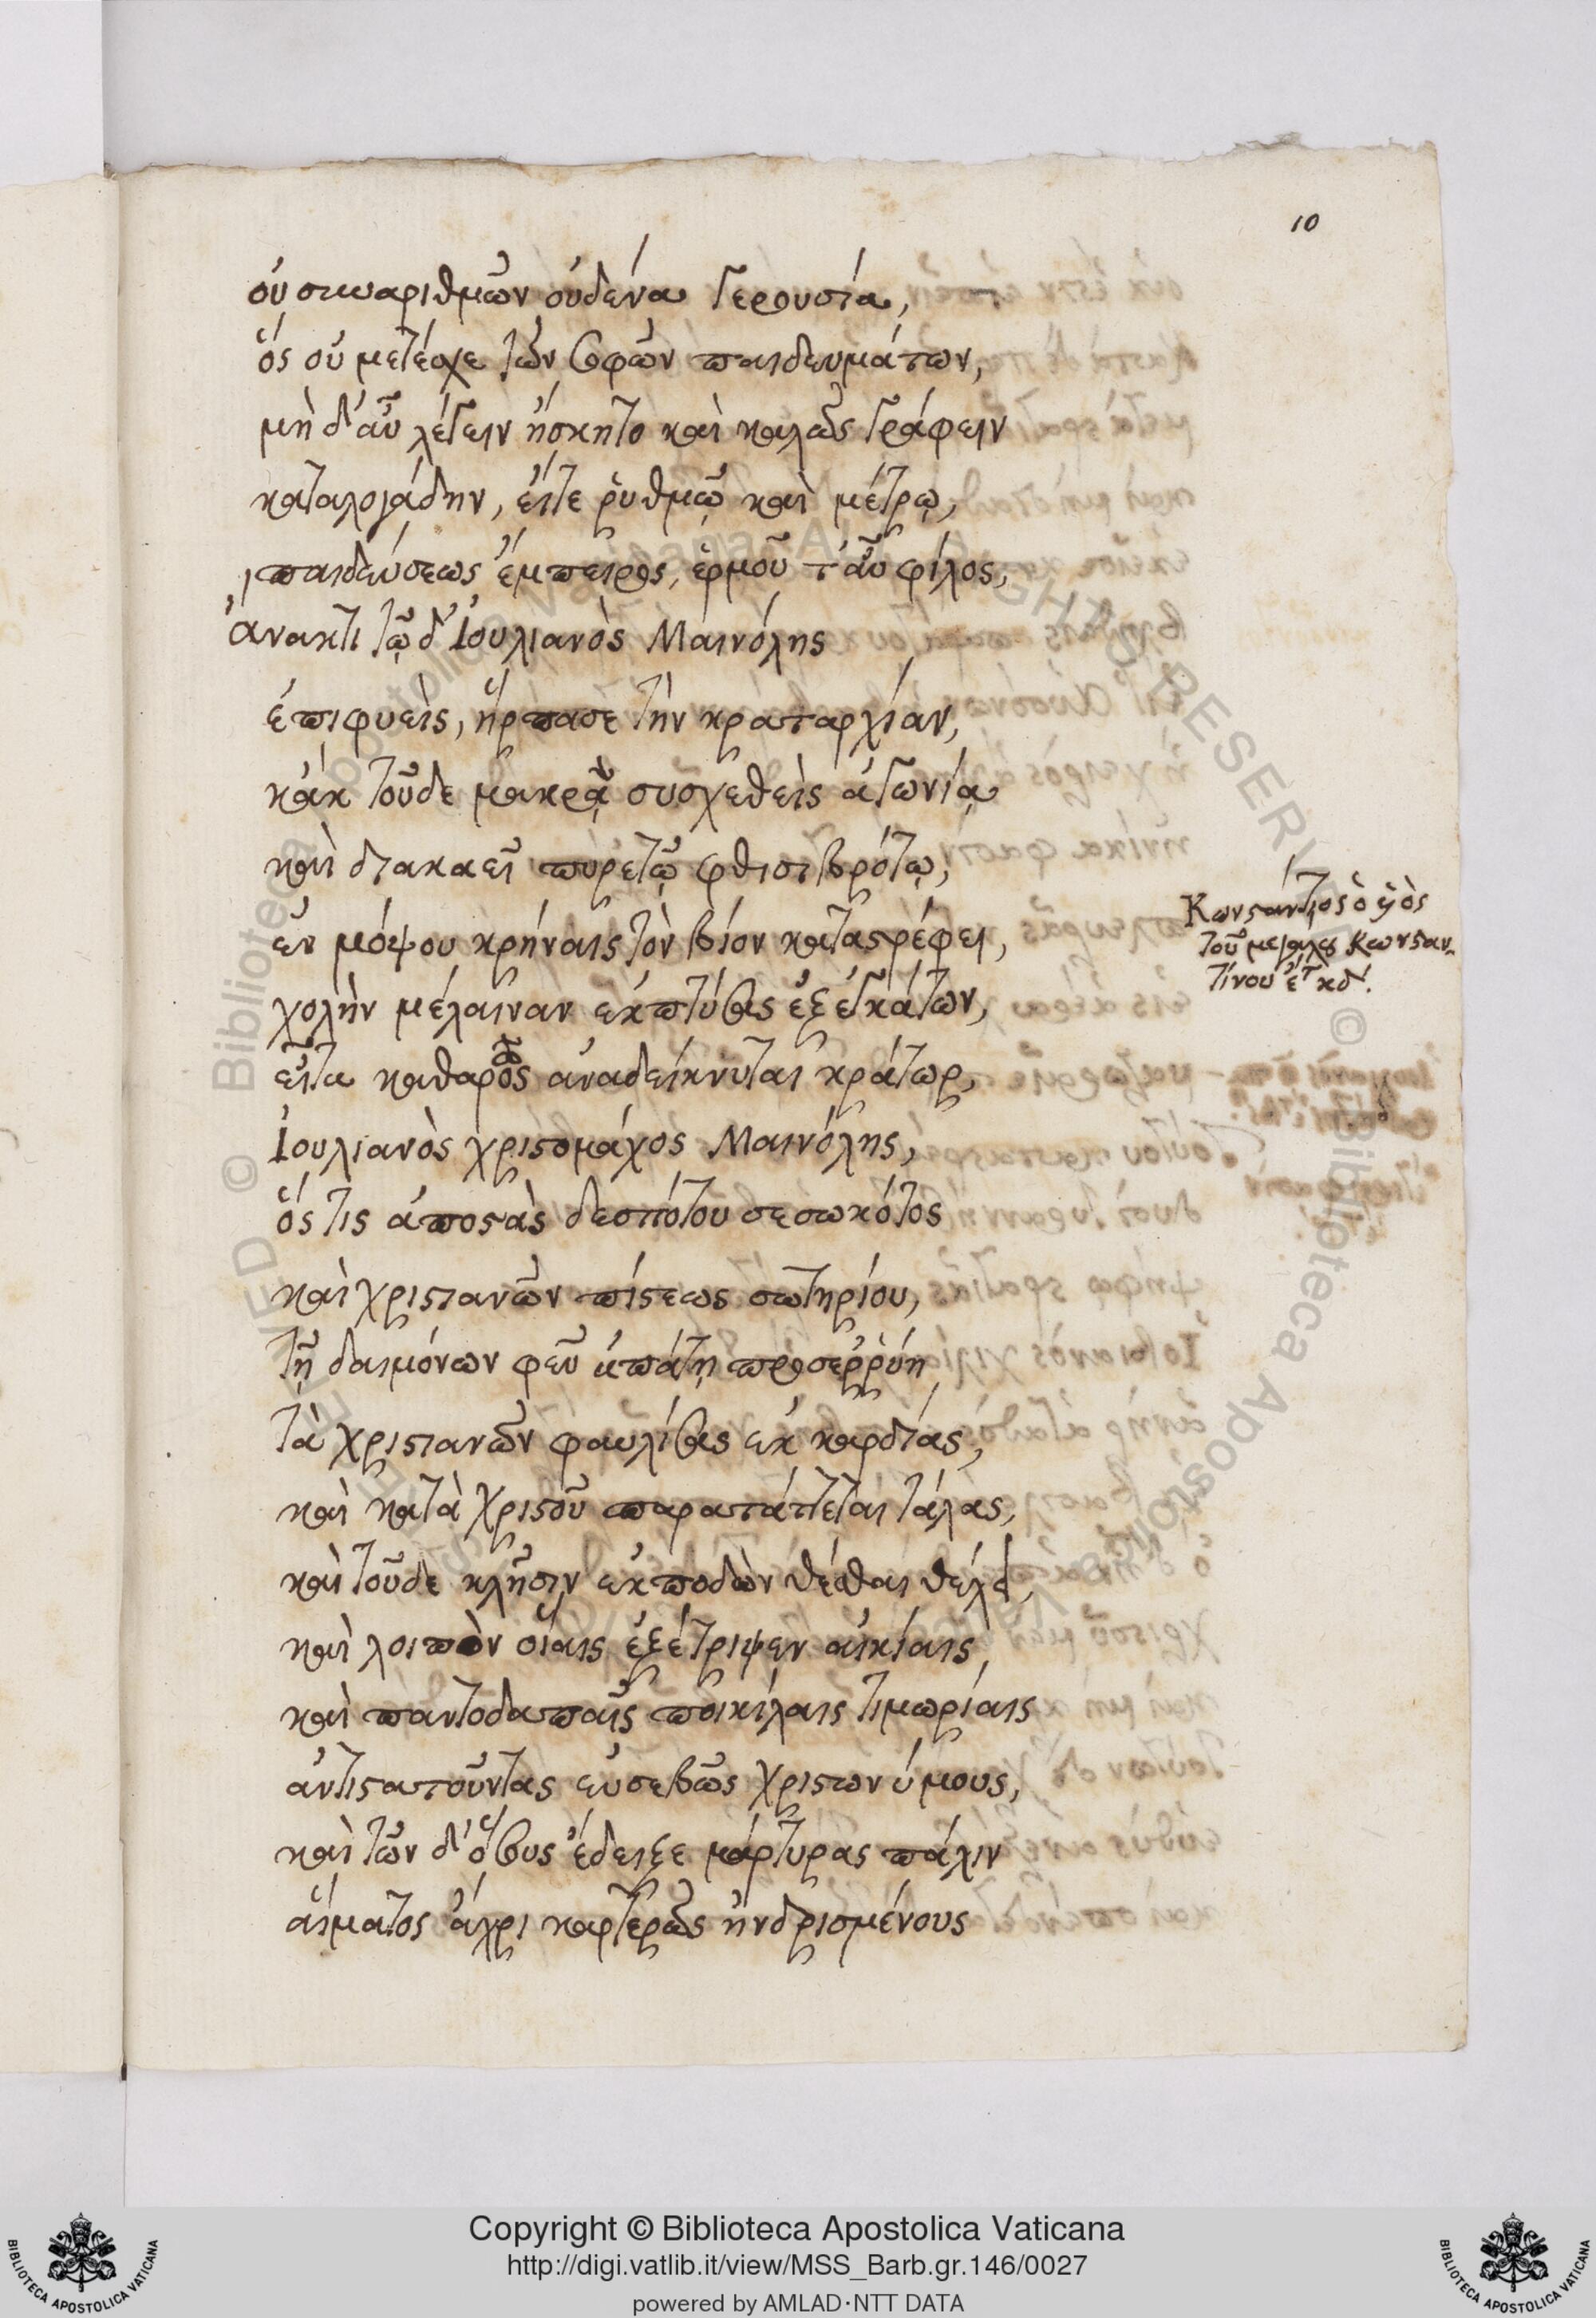 10
οὐ συναριθμῶν οὐδένα γερουσία,
ὃς οὐ μετέσχε τῶν σοφῶν παιδευμάτων,
μὴ δ' αὖ λέγειν ἤσκητο καὶ καλῶς γράφειν
καταλογάδην, εἴτε ῥυθμῷ καὶ μέτρῳ,
παιδεύσεως ἔμπειρος, ἑρμοῦ τ' αὖ φίλος,
ἄνακτι τῷ δ' Ἰουλιανὸς Μαινόλης
ἐπιφυεὶς, ἥρπασε τὴν κραταρχίαν,
κἀκ τοῦδε μακρᾷ συσχεθεὶς ἀγωνίᾳ
καὶ διακαεῖ πυρετῷ φθισιβρότῳ,
ἐν μόψου κρήναις τὸν βίον καταστρέφει,
χολὴν μέλαιναν ἐκπτύσας ἐξ ἐγκάτων,
εἶτα καθαρῶς ἀναδείκνυται κράτωρ,
Ἰουλιανὸς χριστομάχος Μαινόλης,
ὅς τις ἀποστὰς δεσπότου σεσωκότος
καὶ χριστιανῶν πίστεως σωτηρίου,
τῇ δαιμόνων φεῦ ἀπάτῃ προσεῤῥύη
τὰ χριστιανῶν φαυλίσας ἐκ καρδίας,
καὶ κατὰ Χριστοῦ παρατάττεται τάλας,
καὶ τοῦδε κλῆσιν ἐκποδὼν θέσθαι θέλει,
καὶ λοιπὸν οἵαις ἐξέτριψεν αἰκίαις
καὶ παντοδαπαῖς ποικίλαις τιμωρίαις
ἀντιστατοῦντας εὐσεβῶς χριστωνύμους,
καὶ τῶν δ' ὅσους ἔδειξε μάρτυρας πάλιν
αἵματος ἄχρι καρτερῶς ἠνδρισμένους
Κωνστάντιος ὁ υἱὸς
τοῦ μεγάλου Κωνσταν-
τίνου ἔτ κδ.
Copyright © Biblioteca Apostolica Vaticana
http://digi.vatlib.it/view/MSS_Barb.gr.146/0027
powered by AMLAD·NTT DATA
BIBLIOTECA APOSTOLICA VATICANA
BIBLIOTECA APOSTOLICA VATICANA